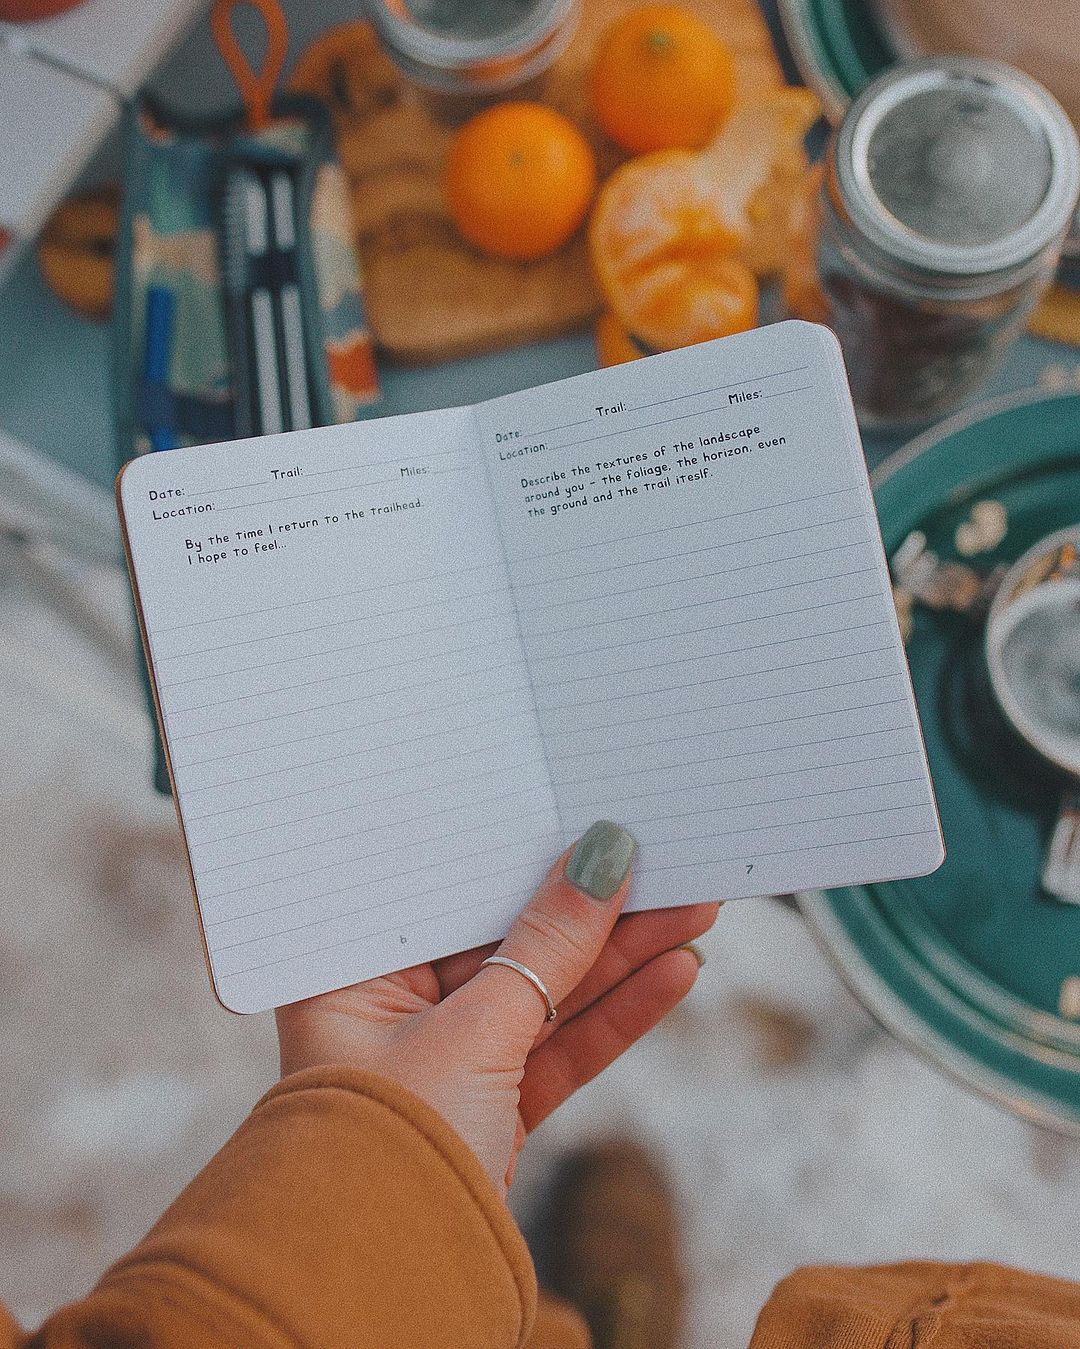 Date: Trail:
Location: Miles:
By the time I return to the trailhead,
I hope to feel...
6
Date: Trail:
Location: Miles:
Describe the textures of the landscape
around you - the foliage, the horizon, even
the ground and the trail iteslf.
7